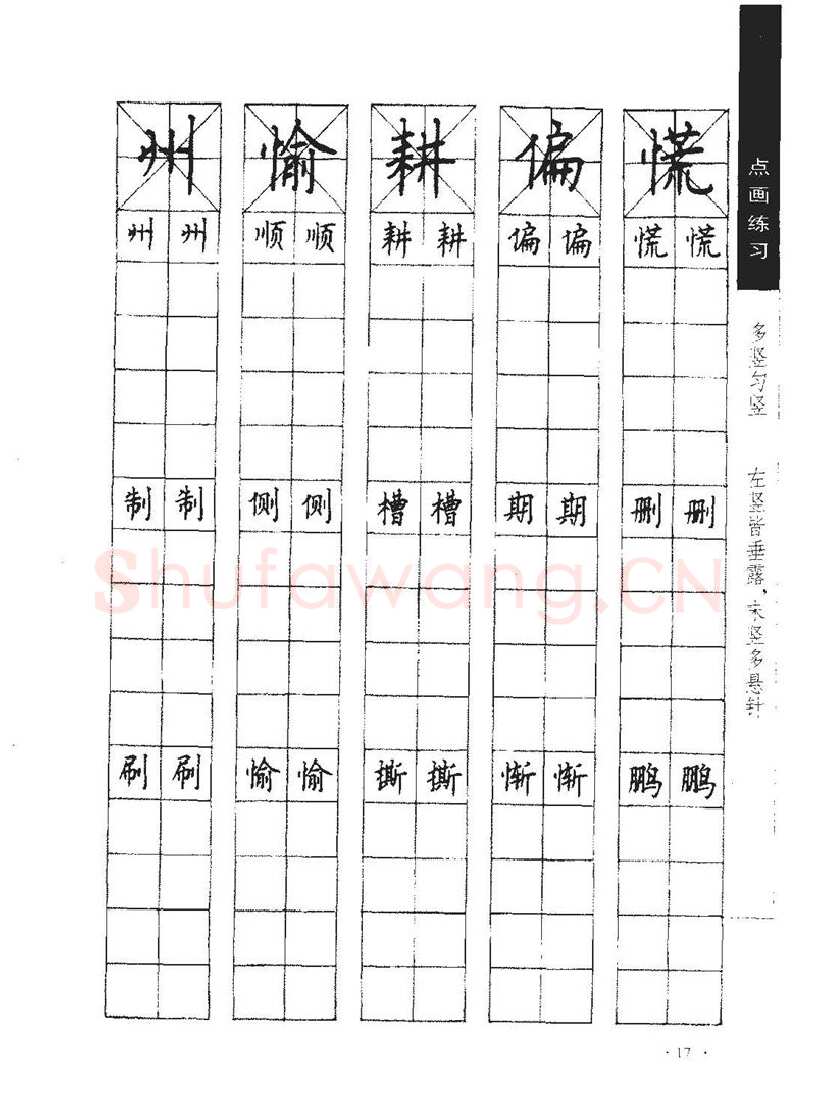 点画练习
多竖匀竖 左竖皆垂露,末竖多悬针
州 愉 耕 偏 慌
州 州 顺 顺 耕 耕 偏 偏 慌 慌
制 制 侧 侧 槽 槽 期 期 删 删
Shufawang.CN
刷 刷 愉 愉 撕 撕 惭 惭 鹏 鹏
·17·